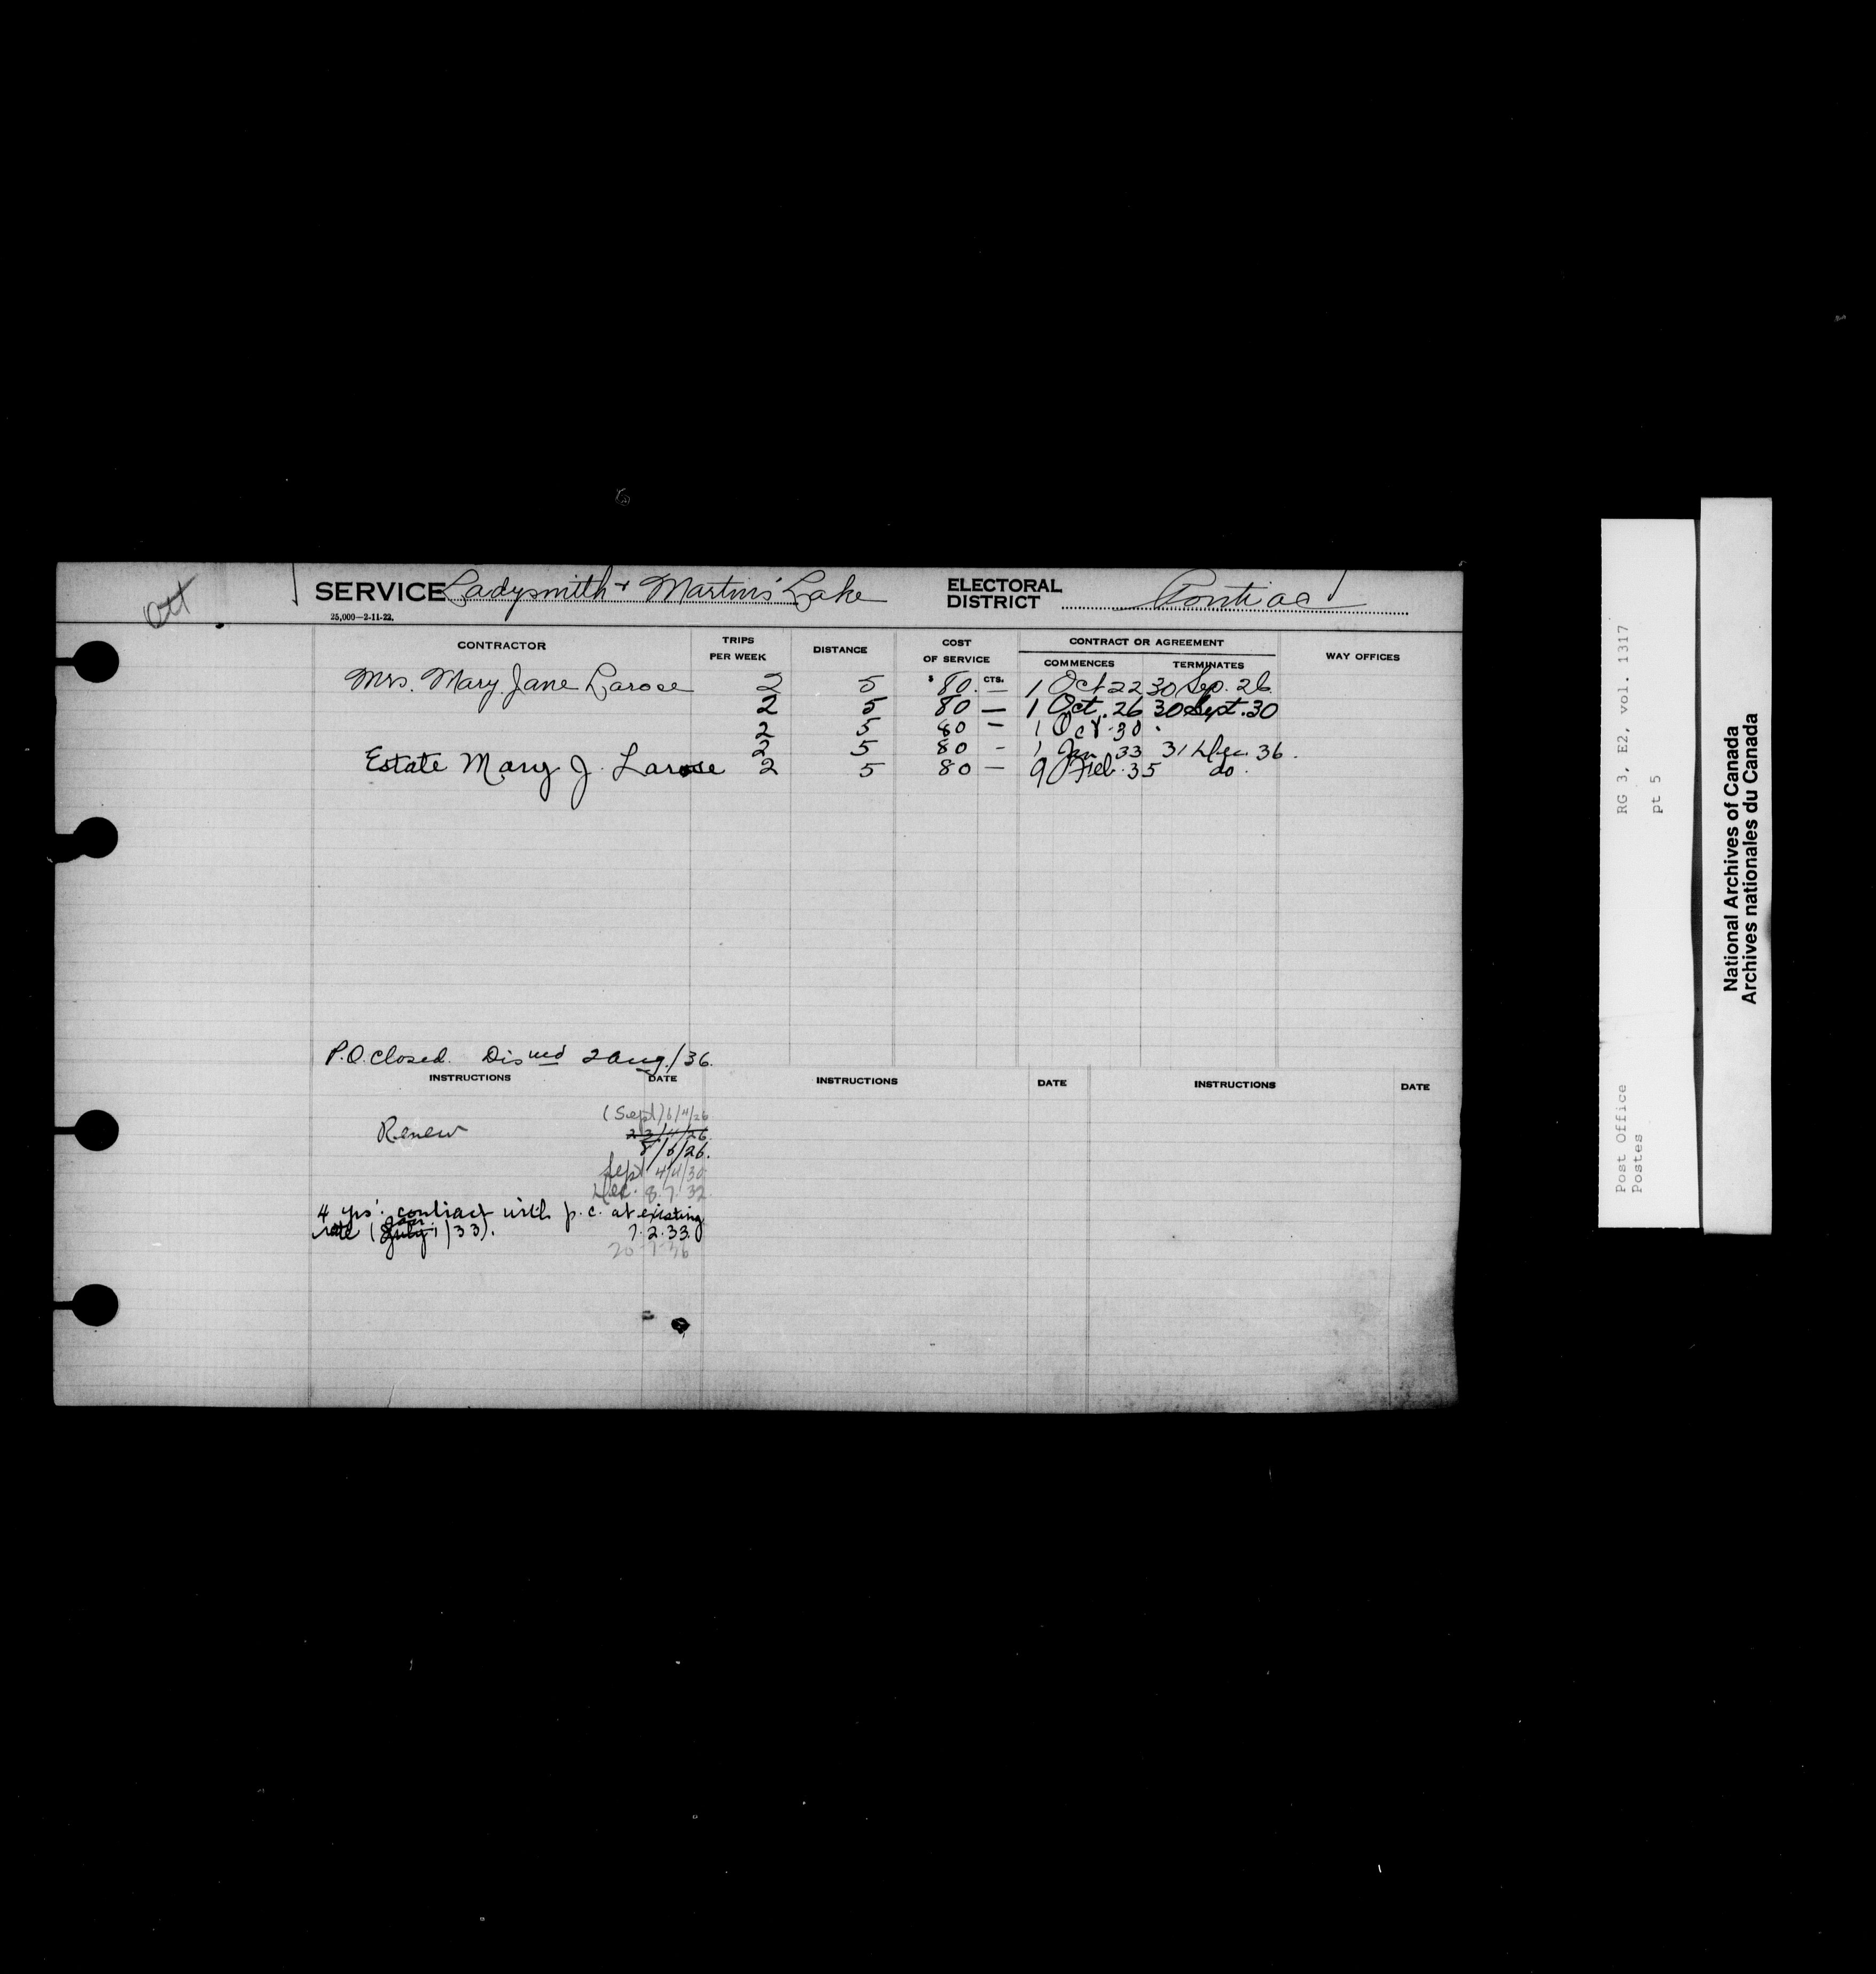 Ott
SERVICE Ladysmith & Martins' Lake ELECTORAL DISTRICT Pontiac
25,000—2-11-22.
CONTRACTOR TRIPS PER WEEK DISTANCE COST OF SERVICE CONTRACT OR AGREEMENT WAY OFFICES
COMMENCES TERMINATES
$ CTS.
Mrs. Mary Jane Larose 2 5 80. — 1 Oct 22 30 Sep. 26
2 5 80 — 1 Oct. 26 30 Sept. 30
2 5 80 — 1 Oct. 30
2 5 80 - 1 Jan 33 31 Dec. 36.
Estate Mary J. Larose 2 5 80 — 9 Feb. 35 do.
P.O. closed. Dis'ued 2 Aug./36.
INSTRUCTIONS DATE INSTRUCTIONS DATE INSTRUCTIONS DATE
(Sept) 6/4/26
Renew 23/4/26
8/6/26.
Sept 4/4/30
Dec. 8.7.32
4 yrs'. contract with p.c. at existing
rate (July Jan 1/33). 7.2.33.
20-7-36
RG 3, E2, vol. 1317
pt 5
Post Office
Postes
National Archives of Canada
Archives nationales du Canada